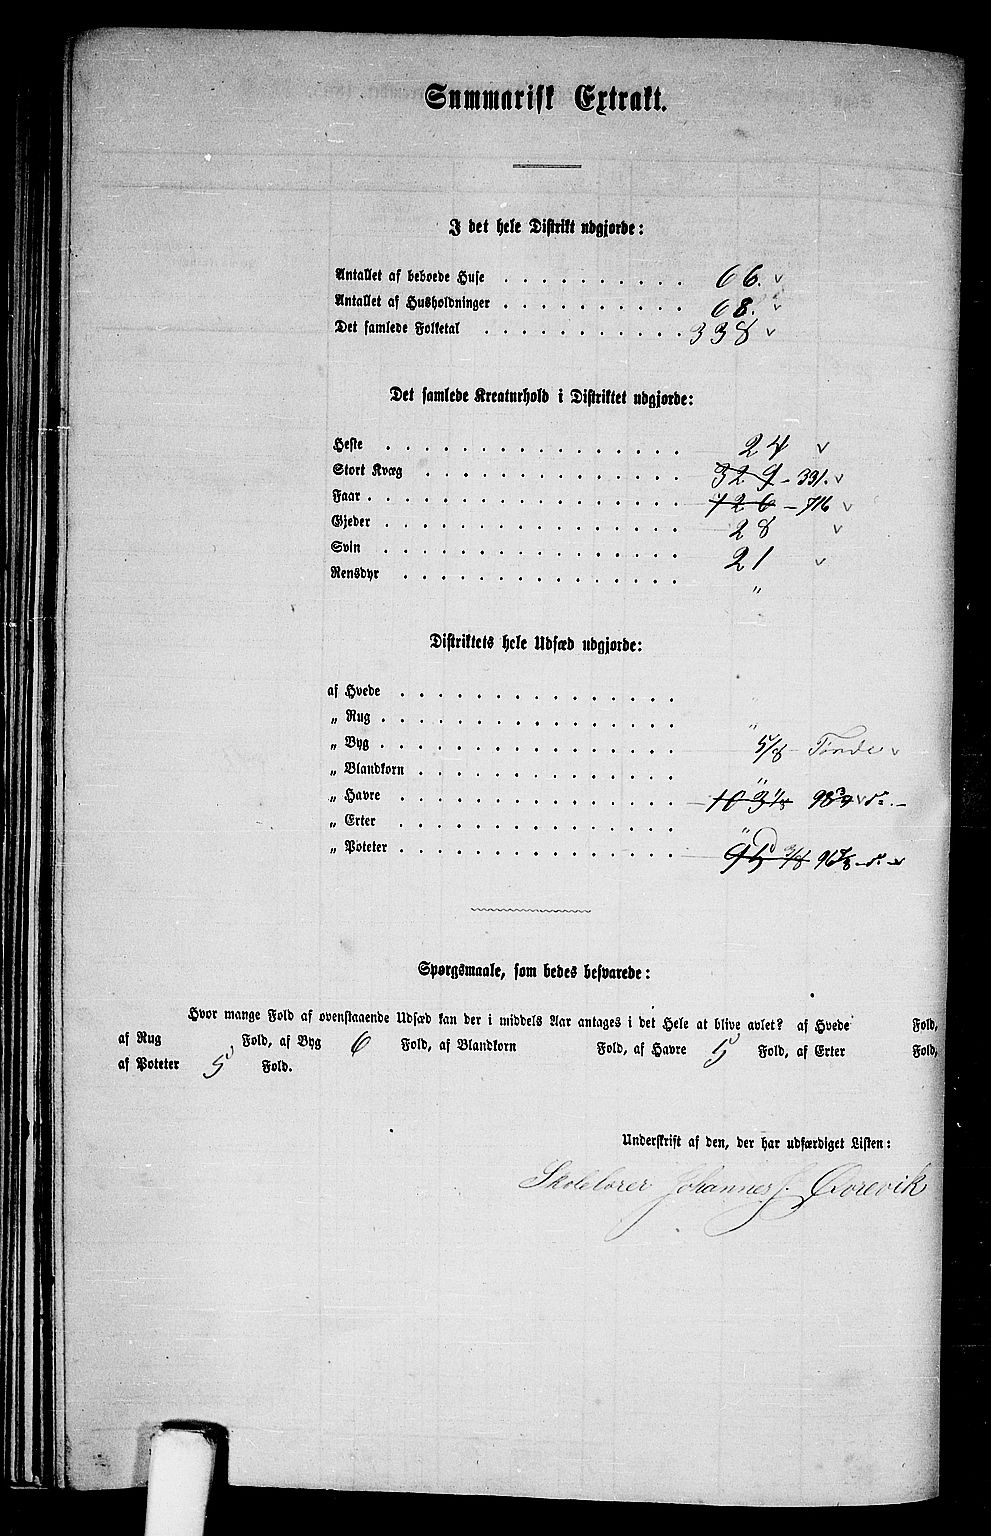 Summarisk Extrakt.
I det hele Distrikt udgjorde:
Antallet af beboede Huse . . . . . . . . . . 66. v
Antallet af Husholdninger . . . . . . . . . . 68. v
Det samlede Folketal . . . . . . . . . . . 338 v
Det samlede Kreaturhold i Distriktet udgjorde:
Heste . . . . . . . . . . . . . . . . 24 v
Stort Kvæg . . . . . . . . . . . . . . 329 - 331. v
Faar . . . . . . . . . . . . . . . . . 726 - 716 v
Gjeder . . . . . . . . . . . . . . . . 28 v
Svin . . . . . . . . . . . . . . . . 21 v
Rensdyr . . . . . . . . . . . . . . . „
Distriktets hele Udsæd udgjorde:
af Hvede . . . . . . . . . . . . . . .
„ Rug . . . . . . . . . . . . . . . . „
„ Byg . . . . . . . . . . . . . . . . 5/8 Tønde v
„ Blandkorn . . . . . . . . . . . . . . „
„ Havre . . . . . . . . . . . . . . .
„ Erter . . . . . . . . . . . . . . . „
„ Poteter . . . . . . . . . . . . . . .
Spørgsmaale, som bedes besvarede:
Hvor mange Fold af ovenstaaende Udsæd kan der i middels Aar antages i det Hele at blive avlet? af Hvede Fold,
af Rug Fold, af Byg 6 Fold, af Blandkorn Fold, af Havre 5 Fold, af Erter Fold,
af Poteter 5 Fold.
Underskrift af den, der har udfærdiget Listen:
Skolelærer Johannes J. Øvrevik